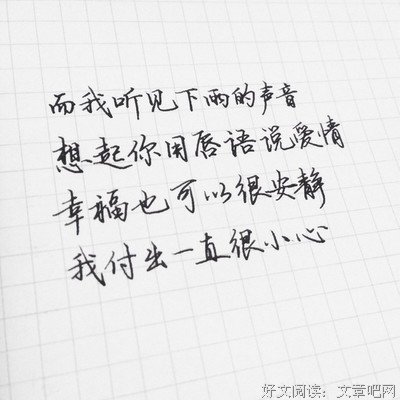 而我听见下雨的声音
想起你用唇语说爱情
幸福也可以很安静
我付出一直很小心
好文阅读：文章吧网